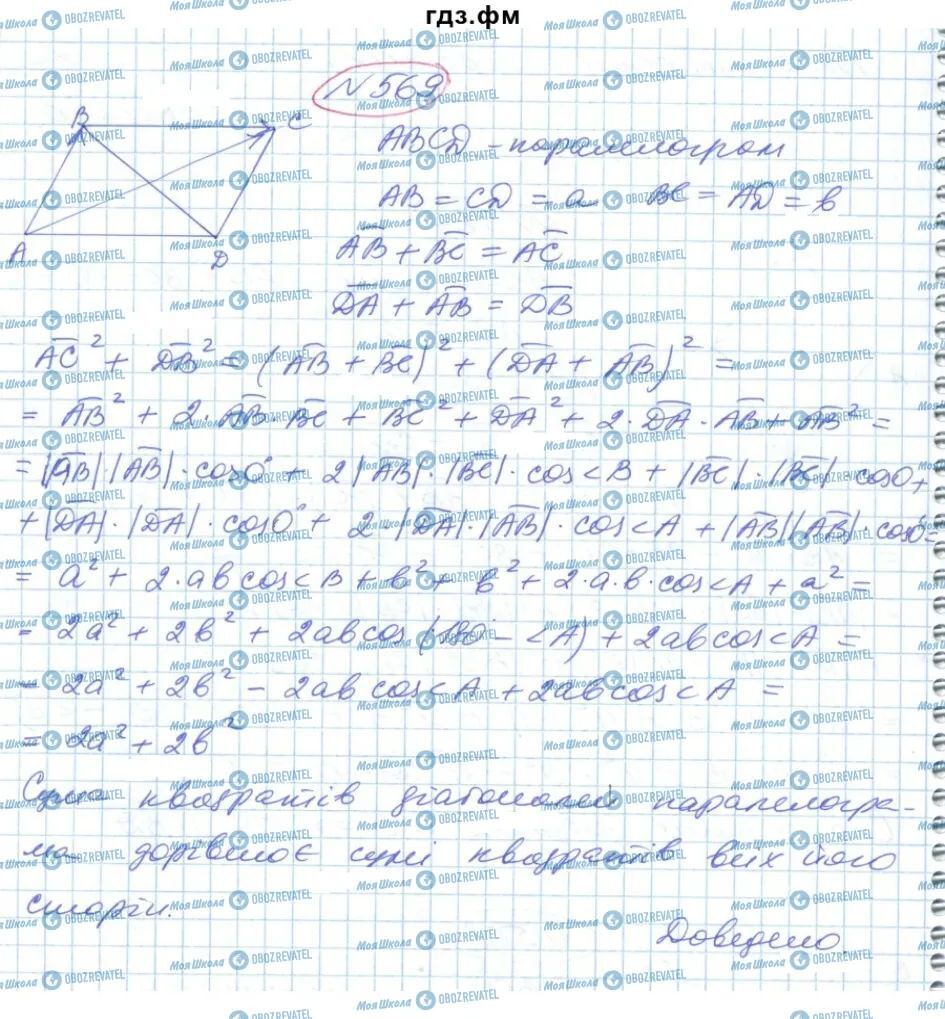 гдз.фм
№569
B C
A D
ABCD - паралелограм
AB = CD = a BC = AD = b
AB + BC = AC
DA + AB = DB
AC² + DB² = (AB + BC)² + (DA + AB)² =
= AB² + 2·AB·BC + BC² + DA² + 2·DA·AB + AB² =
= |AB|·|AB|·cos0° + 2|AB|·|BC|·cos<B + |BC|·|BC| cos0 +
+ |DA|·|DA|·cos0° + 2·|DA|·|AB|·cos<A + |AB||AB|·cos0° =
= a² + 2·ab cos<B + b² + b² + 2·a·b·cos<A + a² =
= 2a² + 2b² + 2ab cos(180° - <A) + 2ab cos<A =
= 2a² + 2b² - 2ab cos<A + 2ab cos<A =
= 2a² + 2b²
Сума квадратів діагоналей паралелогра-
ма дорівнює сумі квадратів всіх його
сторін.
Доведено.
МояШкола OBOZREVATEL